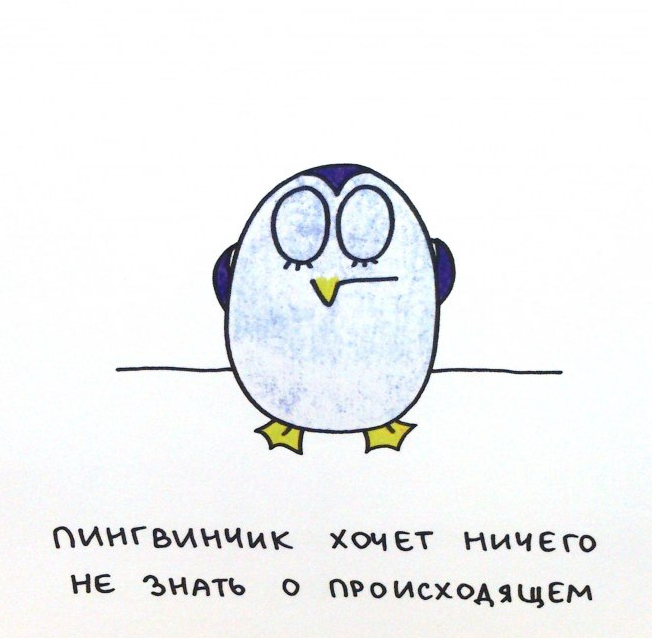 ПИНГВИНЧИК ХОЧЕТ НИЧЕГО
НЕ ЗНАТЬ О ПРОИСХОДЯЩЕМ